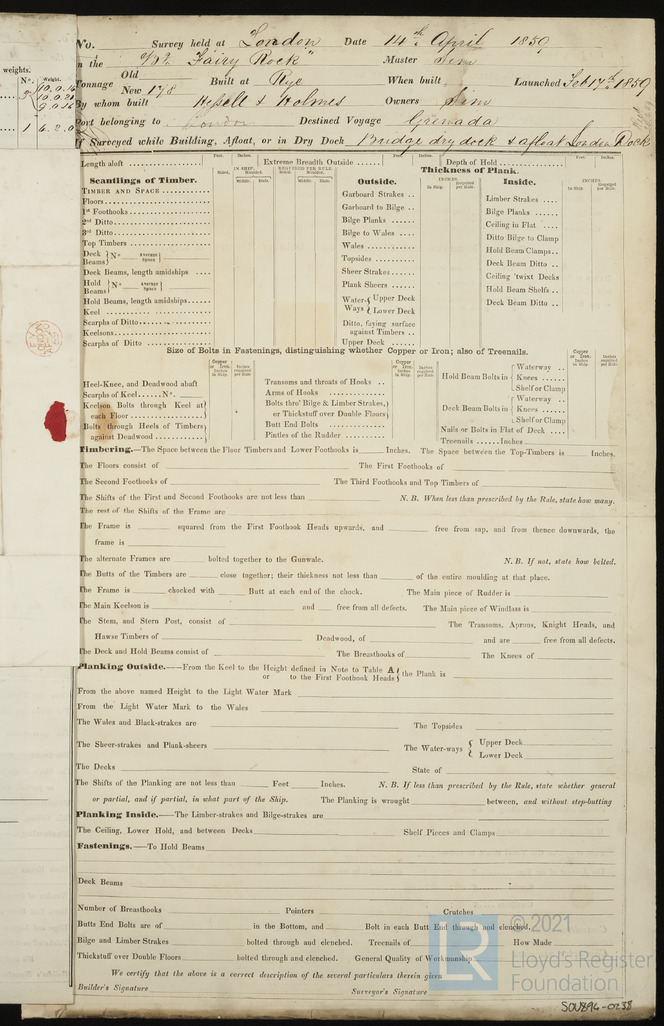 weights.
No. Weight.
3 10.0.16
10.0.21
9.0.16
1 6.2.0
No. Survey held at London Date 14th April 1859
on the "Fairy Rock" Master Sim
Tonnage Old
New 178 Built at Rye When built Launched Feb 17th 1859
By whom built Hessell & Holmes Owners Sim
Port belonging to London Destined Voyage Grenada
If Surveyed while Building, Afloat, or in Dry Dock Bridge dry dock & afloat London Dock
Length aloft Feet. Inches. Extreme Breadth Outside Feet. Inches. Depth of Hold Feet. Inches.
Scantlings of Timber. Thickness of Plank.
IN SHIP. REQUIRED PER RULE.
Sided. Moulded. Sided. Moulded.
Middle. Ends. Middle. Ends.
Outside. INCHES. In Ship. Required per Rule. Inside. INCHES. In Ship. Required per Rule.
Timber and Space
Floors
1st Foothooks
2nd Ditto
3rd Ditto
Top Timbers
Deck Beams } No. Average Space
Deck Beams, length amidships
Hold Beams } No. Average Space
Hold Beams, length amidships
Keel
Scarphs of Ditto
Keelsons
Scarphs of Ditto
Garboard Strakes
Garboard to Bilge
Bilge Planks
Bilge to Wales
Wales
Topsides
Sheer Strakes
Plank Sheers
Water-Ways { Upper Deck
Lower Deck
Ditto, faying surface
against Timbers
Upper Deck
Limber Strakes
Bilge Planks
Ceiling in Flat
Ditto Bilge to Clamp
Hold Beam Clamps
Deck Beam Ditto
Ceiling 'twixt Decks
Hold Beam Shelfs
Deck Beam Ditto
Size of Bolts in Fastenings, distinguishing whether Copper or Iron; also of Treenails.
Copper or Iron. Inches in Ship. Inches required per Rule.
Copper or Iron. Inches in Ship. Inches required per Rule.
Copper or Iron. Inches in Ship. Inches required per Rule.
Heel-Knee, and Deadwood abaft
Scarphs of Keel No.
Keelson Bolts through Keel at
each Floor
Bolts through Heels of Timbers
against Deadwood
Transoms and throats of Hooks
Arms of Hooks
Bolts thro' Bilge & Limber Strakes,
or Thickstuff over Double Floors
Butt End Bolts
Pintles of the Rudder
Hold Beam Bolts in { Waterway
Knees
Shelf or Clamp
Deck Beam Bolts in { Waterway
Knees
Shelf or Clamp
Nails or Bolts in Flat of Deck
Treenails Inches
Timbering.—The Space between the Floor Timbers and Lower Foothooks is Inches. The Space between the Top-Timbers is Inches.
The Floors consist of The First Foothooks of
The Second Foothooks of The Third Foothooks and Top Timbers of
The Shifts of the First and Second Foothooks are not less than N. B. When less than prescribed by the Rule, state how many.
The rest of the Shifts of the Frame are
The Frame is squared from the First Foothook Heads upwards, and free from sap, and from thence downwards, the
frame is
The alternate Frames are bolted together to the Gunwale. N. B. If not, state how bolted.
The Butts of the Timbers are close together; their thickness not less than of the entire moulding at that place.
The Frame is chocked with Butt at each end of the chock. The Main piece of Rudder is
The Main Keelson is and free from all defects. The Main piece of Windlass is
The Stem, and Stern Post, consist of The Transoms, Aprons, Knight Heads, and
Hawse Timbers of Deadwood, of and are free from all defects.
The Deck and Hold Beams consist of The Breasthooks of The Knees of
Planking Outside.—From the Keel to the Height defined in Note to Table A
or to the First Foothook Heads } the Plank is
From the above named Height to the Light Water Mark
From the Light Water Mark to the Wales
The Wales and Black-strakes are The Topsides
The Sheer-strakes and Plank-sheers The Water-ways { Upper Deck
Lower Deck
The Decks State of
The Shifts of the Planking are not less than Feet Inches. N. B. If less than prescribed by the Rule, state whether general
or partial, and if partial, in what part of the Ship. The Planking is wrought between, and without step-butting
Planking Inside.—The Limber-strakes and Bilge-strakes are
The Ceiling, Lower Hold, and between Decks Shelf Pieces and Clamps
Fastenings.—To Hold Beams
Deck Beams
Number of Breasthooks Pointers Crutches
Butts End Bolts are of in the Bottom, and Bolt in each Butt End through and clenched.
Bilge and Limber Strakes bolted through and clenched. Treenails of How Made
Thickstuff over Double Floors bolted through and clenched. General Quality of Workmanship
We certify that the above is a correct description of the several particulars therein given
Builder's Signature Surveyor's Signature
LR ©2021
Lloyd's Register
Foundation
SOU896-0238